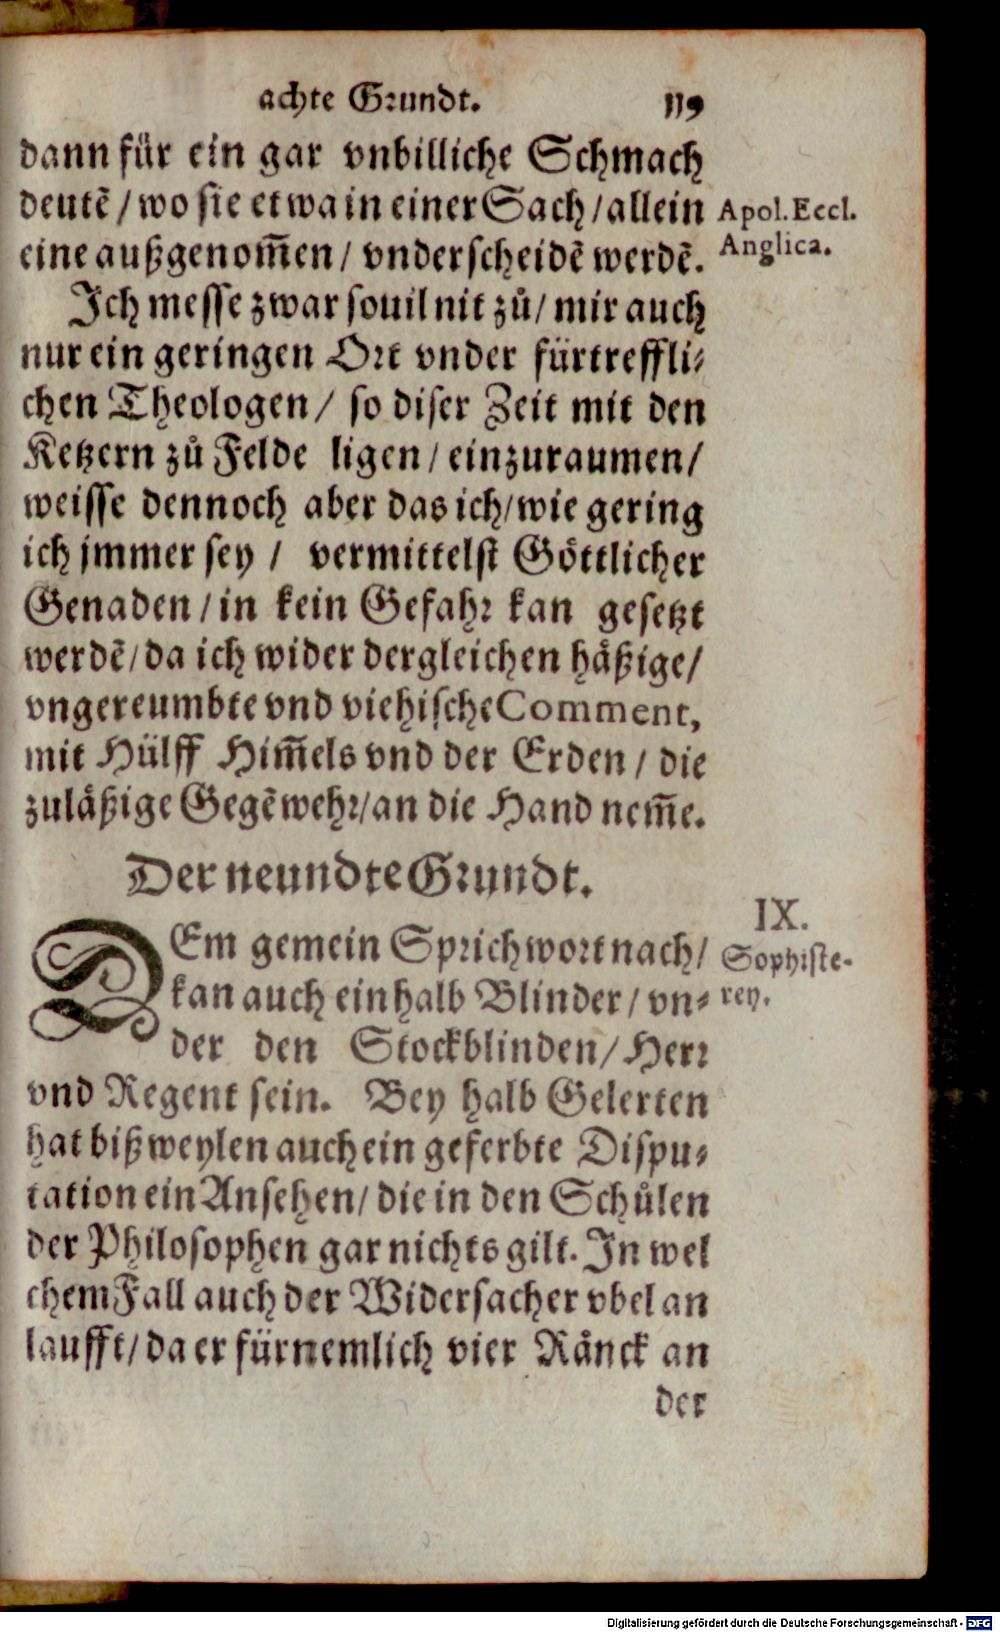 achte Grundt. 119
dann für ein gar vnbilliche Schmach
deutē / wo sie etwa in einer Sach / allein
Apol. Eccl.
Anglica.
eine außgenom̄en / vnderscheidē werdē.
Ich messe zwar souil nit zů / mir auch
nur ein geringen Ort vnder fürtreffli-
chen Theologen / so diser Zeit mit den
Ketzern zů Felde ligen / einzuraumen /
weisse dennoch aber das ich / wie gering
ich jmmer sey / vermittelst Göttlicher
Genaden / in kein Gefahr kan gesetzt
werdē / da ich wider dergleichen häßige /
vngereumbte vnd viehische Comment,
mit Hülff Him̄els vnd der Erden / die
zuläßige Gegēwehr / an die Hand nem̄e.
Der neundte Grundt.
IX.
Sophiste-
rey.
DEm gemein Sprichwort nach /
kan auch ein halb Blinder / vn-
der den Stockblinden / Herr
vnd Regent sein. Bey halb Gelerten
hat bißweylen auch ein geferbte Dispu-
tation ein Ansehen / die in den Schůlen
der Philosophen gar nichts gilt. In wel
chem Fall auch der Widersacher vbel an
laufft / da er fürnemlich vier Ränck an
der
Digitalisierung gefördert durch die Deutsche Forschungsgemeinschaft - DFG